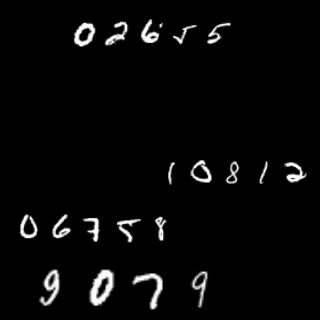 02655
10812
06758
9079